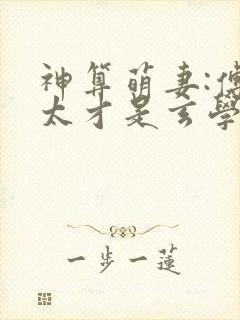 神算萌妻:
太才是玄學
一步一蓮